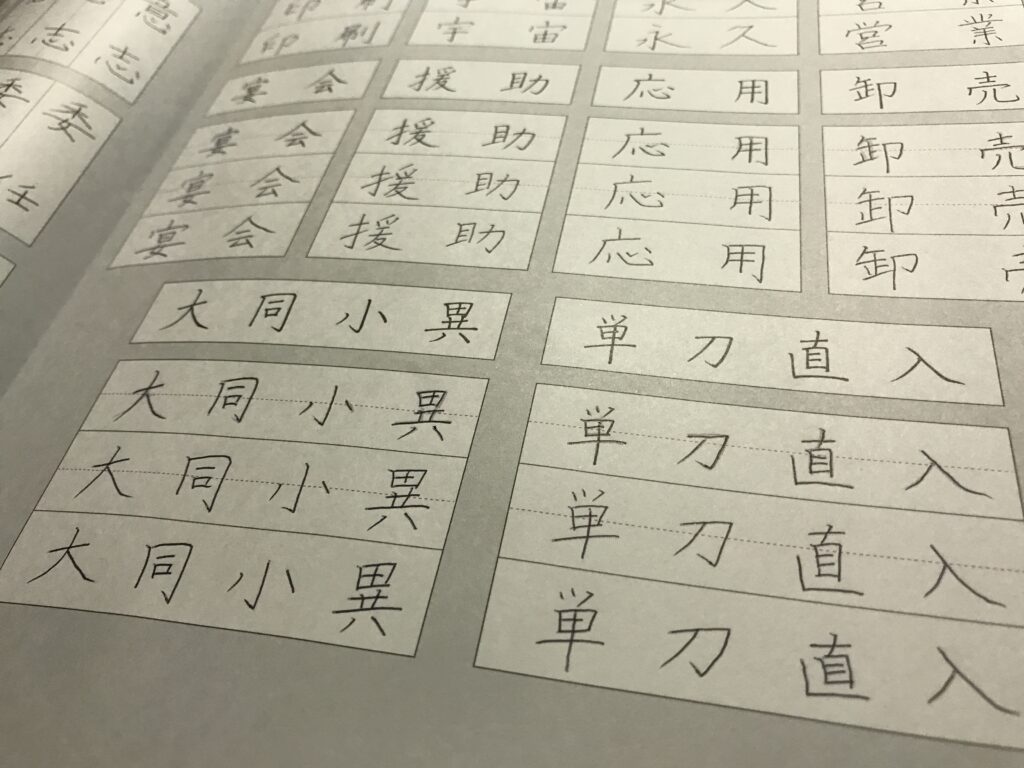 意志
志
志
委任
委
任
印刷 宇宙 永久 営業
印刷 宇宙 永久 営業
宴会 援助 応用 卸売
宴会 援助 応用 卸売
宴会 援助 応用 卸売
宴会 援助 応用 卸売
大同小異 単刀直入
大同小異 単刀直入
大同小異 単刀直入
大同小異 単刀直入